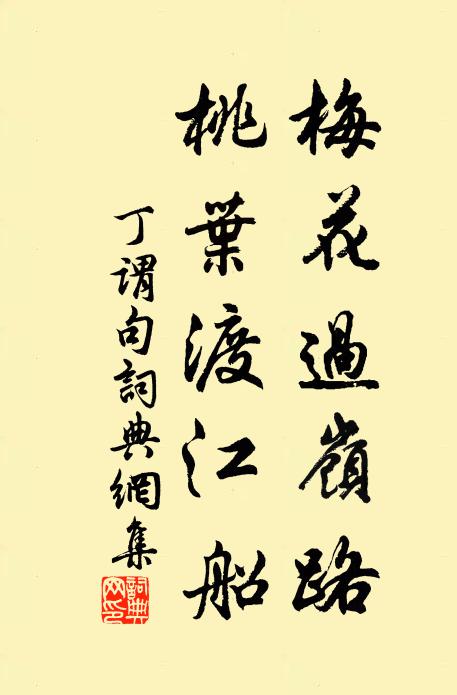 梅花過嶺路
桃葉渡江船
丁謂句詞典網集
詞典网印